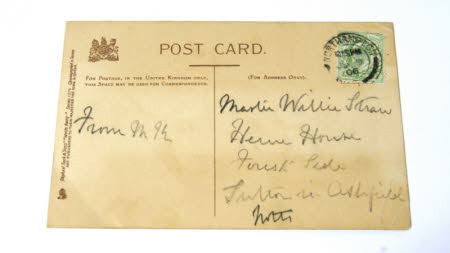 POST CARD.
FOR POSTAGE, IN THE UNITED KINGDOM ONLY,
THIS SPACE MAY BE USED FOR CORRESPONDENCE.
(FOR ADDRESS ONLY).
NORTHAMPTON
06
From M
Master Willie Straw
House
Forest Side
Sutton in Ashfield
Notts